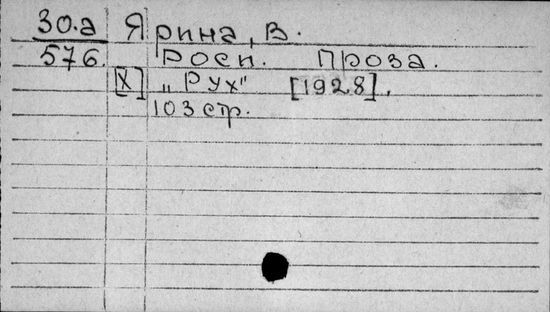 30.а Ярина, В.
576. Роси. Проза.
[Х] „Рух" [1928].
103 стр.